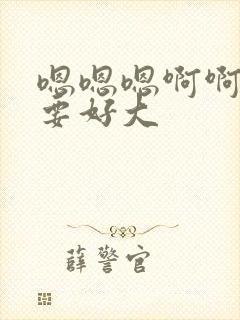 嗯嗯嗯啊啊
要好大
薛警官